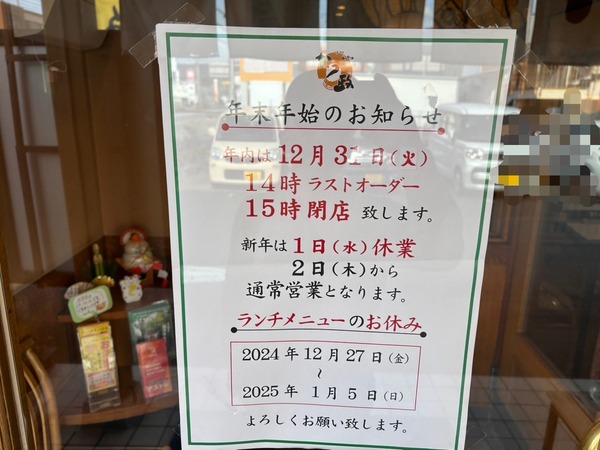 年末年始のお知らせ
年内は 12月 31日(火)
14時 ラストオーダー
15時 閉店 致します。
新年は 1日(水)休業
2日(木)から
通常営業となります。
ランチメニューのお休み
2024年12月27日(金)
~
2025年 1月 5日(日)
よろしくお願い致します。